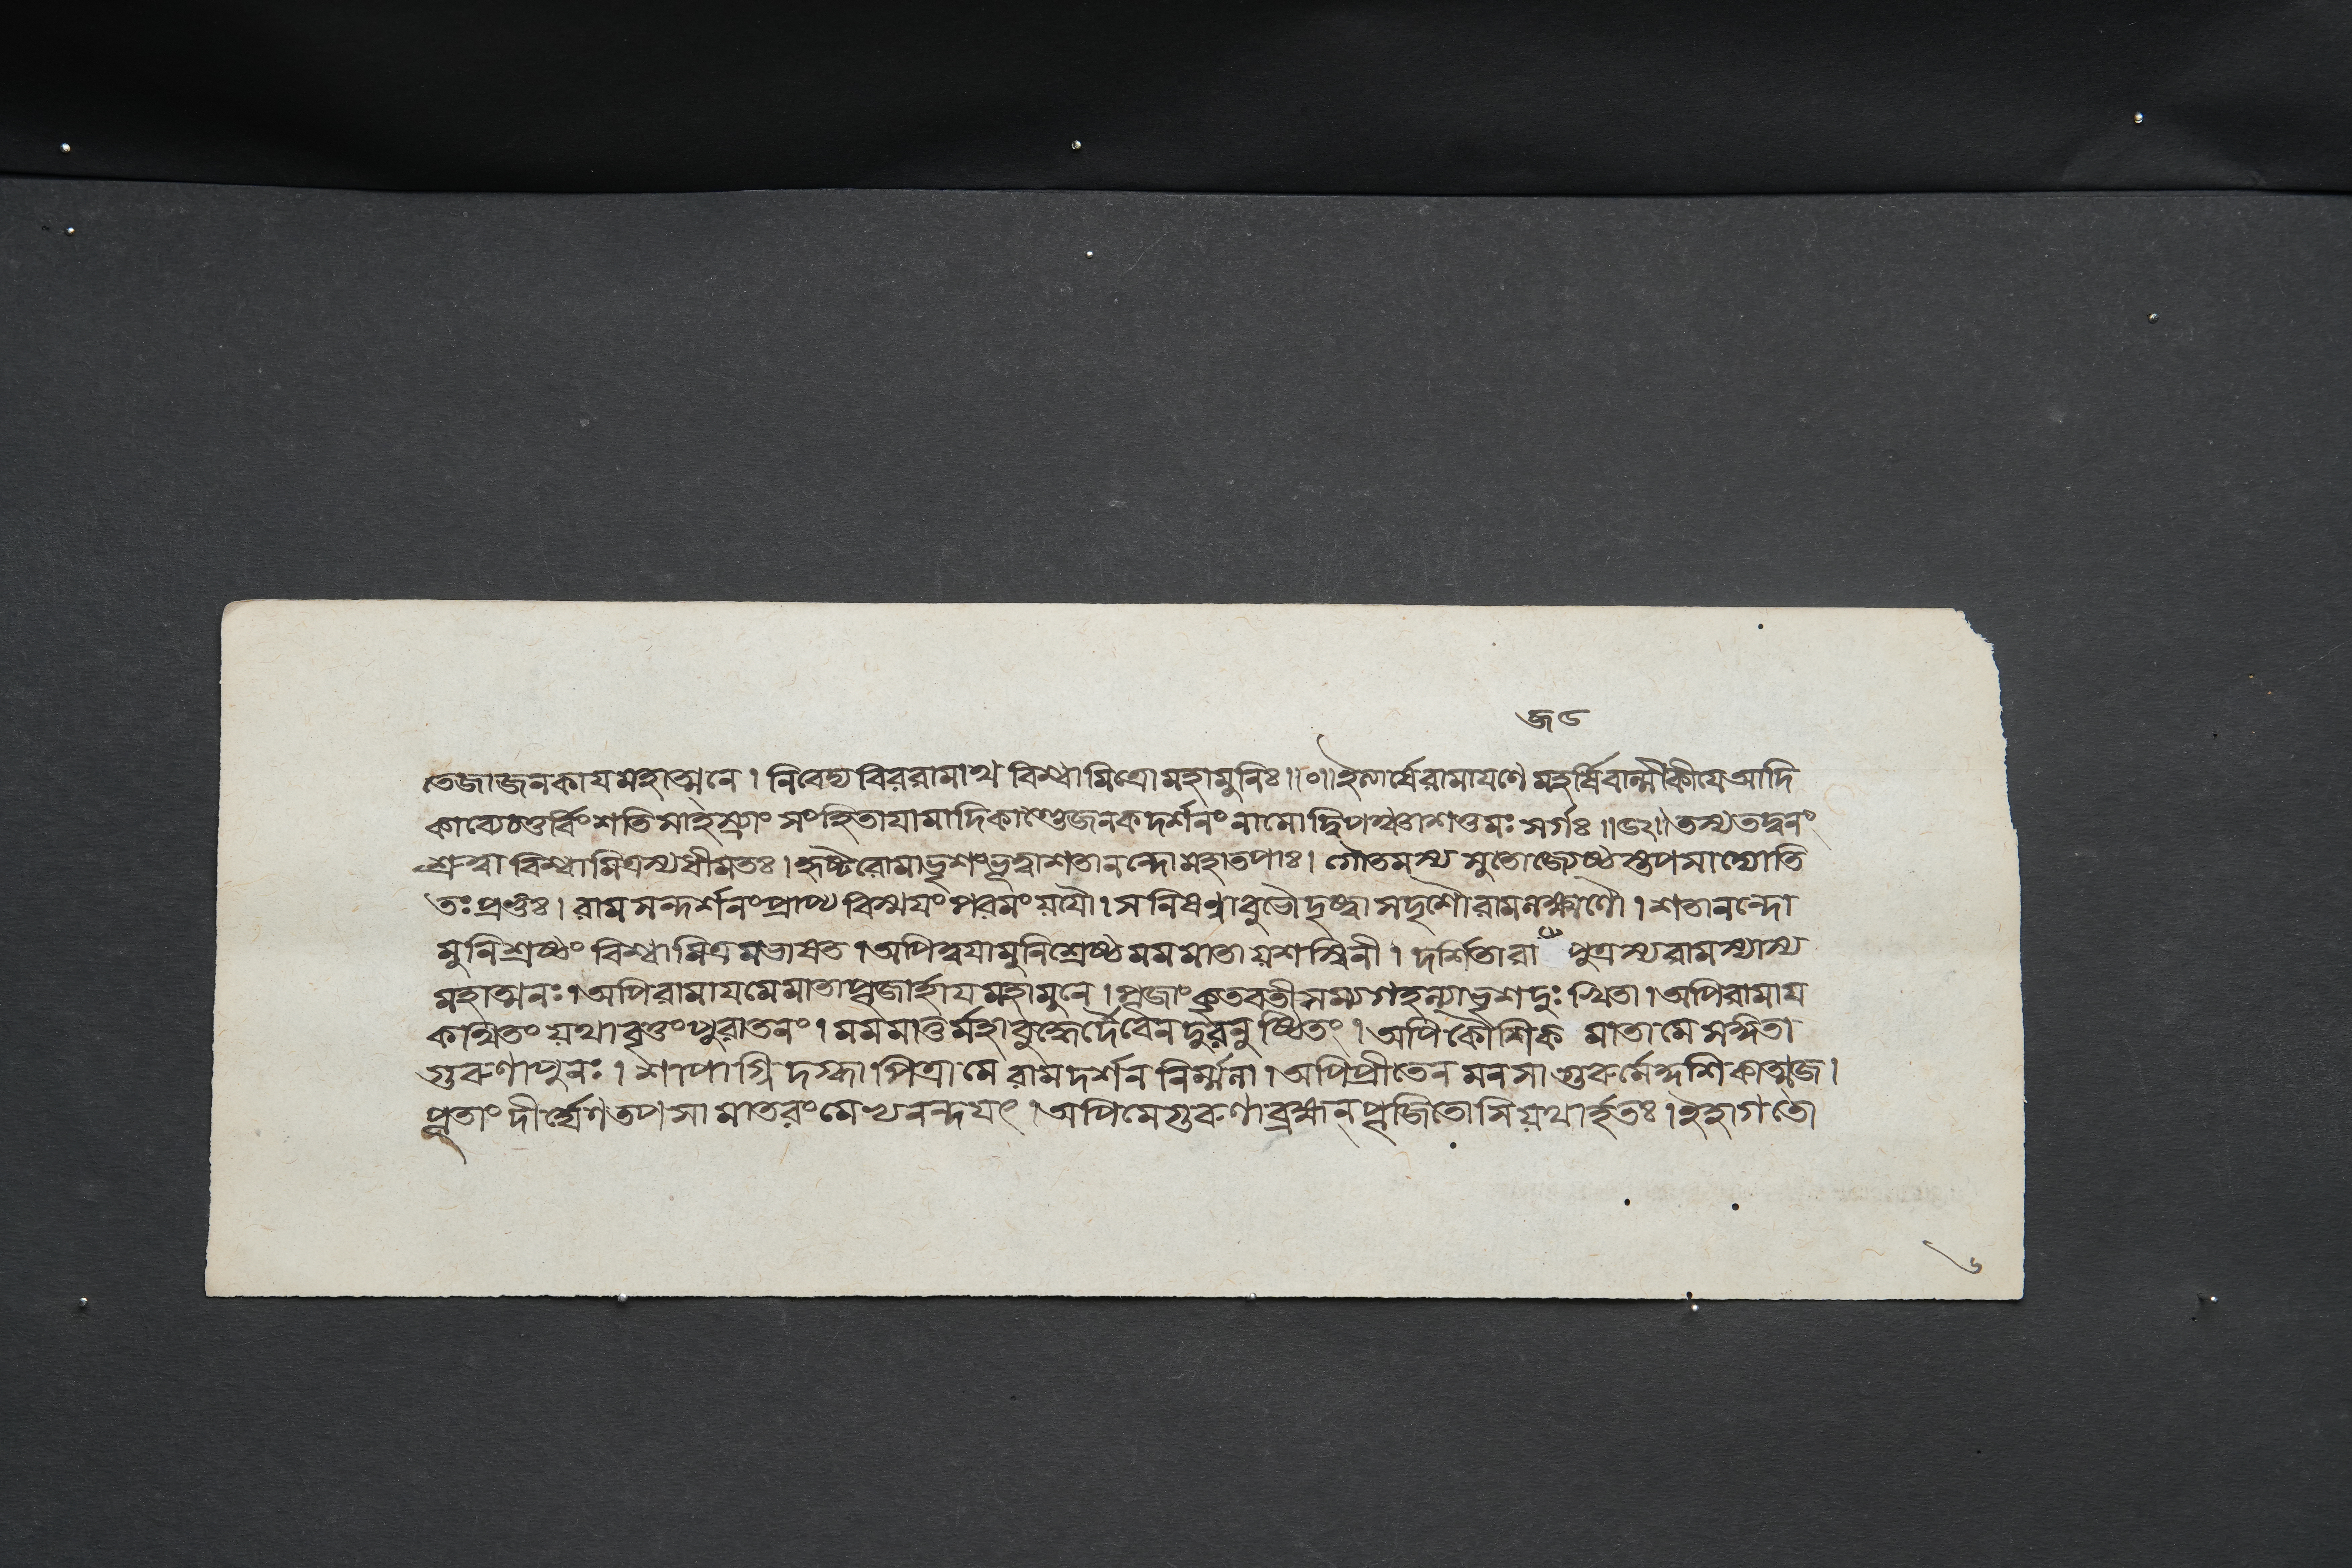 তেজাজনকাযমহাত্মনে । নিবেদ্য বিররামাথ বিশ্বামিত্রোমহামুনিঃ ॥০॥ ইত্যার্ষেরামাযণে মহর্ষিবাল্মীকীযে আদি
কাব্যেচতুর্বিংশতিসাহস্র্যাং সংহিতাযামাদিকাণ্ডেজনকদর্শনং নামো দ্বিপঞ্চাশত্তমঃ সর্গঃ ॥৫২॥ তস্যতদ্বচনং
শ্রুত্বা বিশ্বামিত্রস্যধীমতঃ । হৃষ্টরোমাভৃশংভূত্বাশতানন্দোমহাতপাঃ । গৌতমস্য সুতোজ্যেষ্ঠস্তপসাদ্যোতি
তঃ প্রভুঃ । রাম সন্দর্শনংপ্রাপ্য বিস্ময়ং পরমংয়যৌ । স নিষণ্ণাবুভৌদৃষ্ট্বা সদৃশৌরামলক্ষ্মণৌ । শতানন্দো
মুনিশ্রেষ্ঠং বিশ্বামিত্রমভাষত । অপিত্বযামুনিশ্রেষ্ঠ মম মাতা য়শস্বিনী । দর্শিতারা পুত্রস্যরামস্যাস্য
মহাত্মনঃ । অপি রামাযমেমাতাপূজার্হায মহামুনে । পূজাং কৃতবতীসম্যগহল্যাভৃশদুঃখিতা । অপিরামায
কথিতং য়থাবৃত্তংপুরাতনং । মমমাতুর্মহাবুদ্ধের্দেবেনদুরনুষ্ঠিতং । অপি কৌশিক মাতা মে সঙ্গিতা
গুরুণাপুনঃ । শাপাগ্নি দগ্ধা পিত্রা মে রাম দর্শন নির্ম্মলা । অপিপ্রীতেন মনসা গুরুর্মে কুশিকাত্মজ ।
পূতাং দীর্ঘেণ তপসা মাতরংমে অপিমেগুরুণাব্রহ্মন্ পূজিতোসি য়থার্হতঃ । ইহাগতো